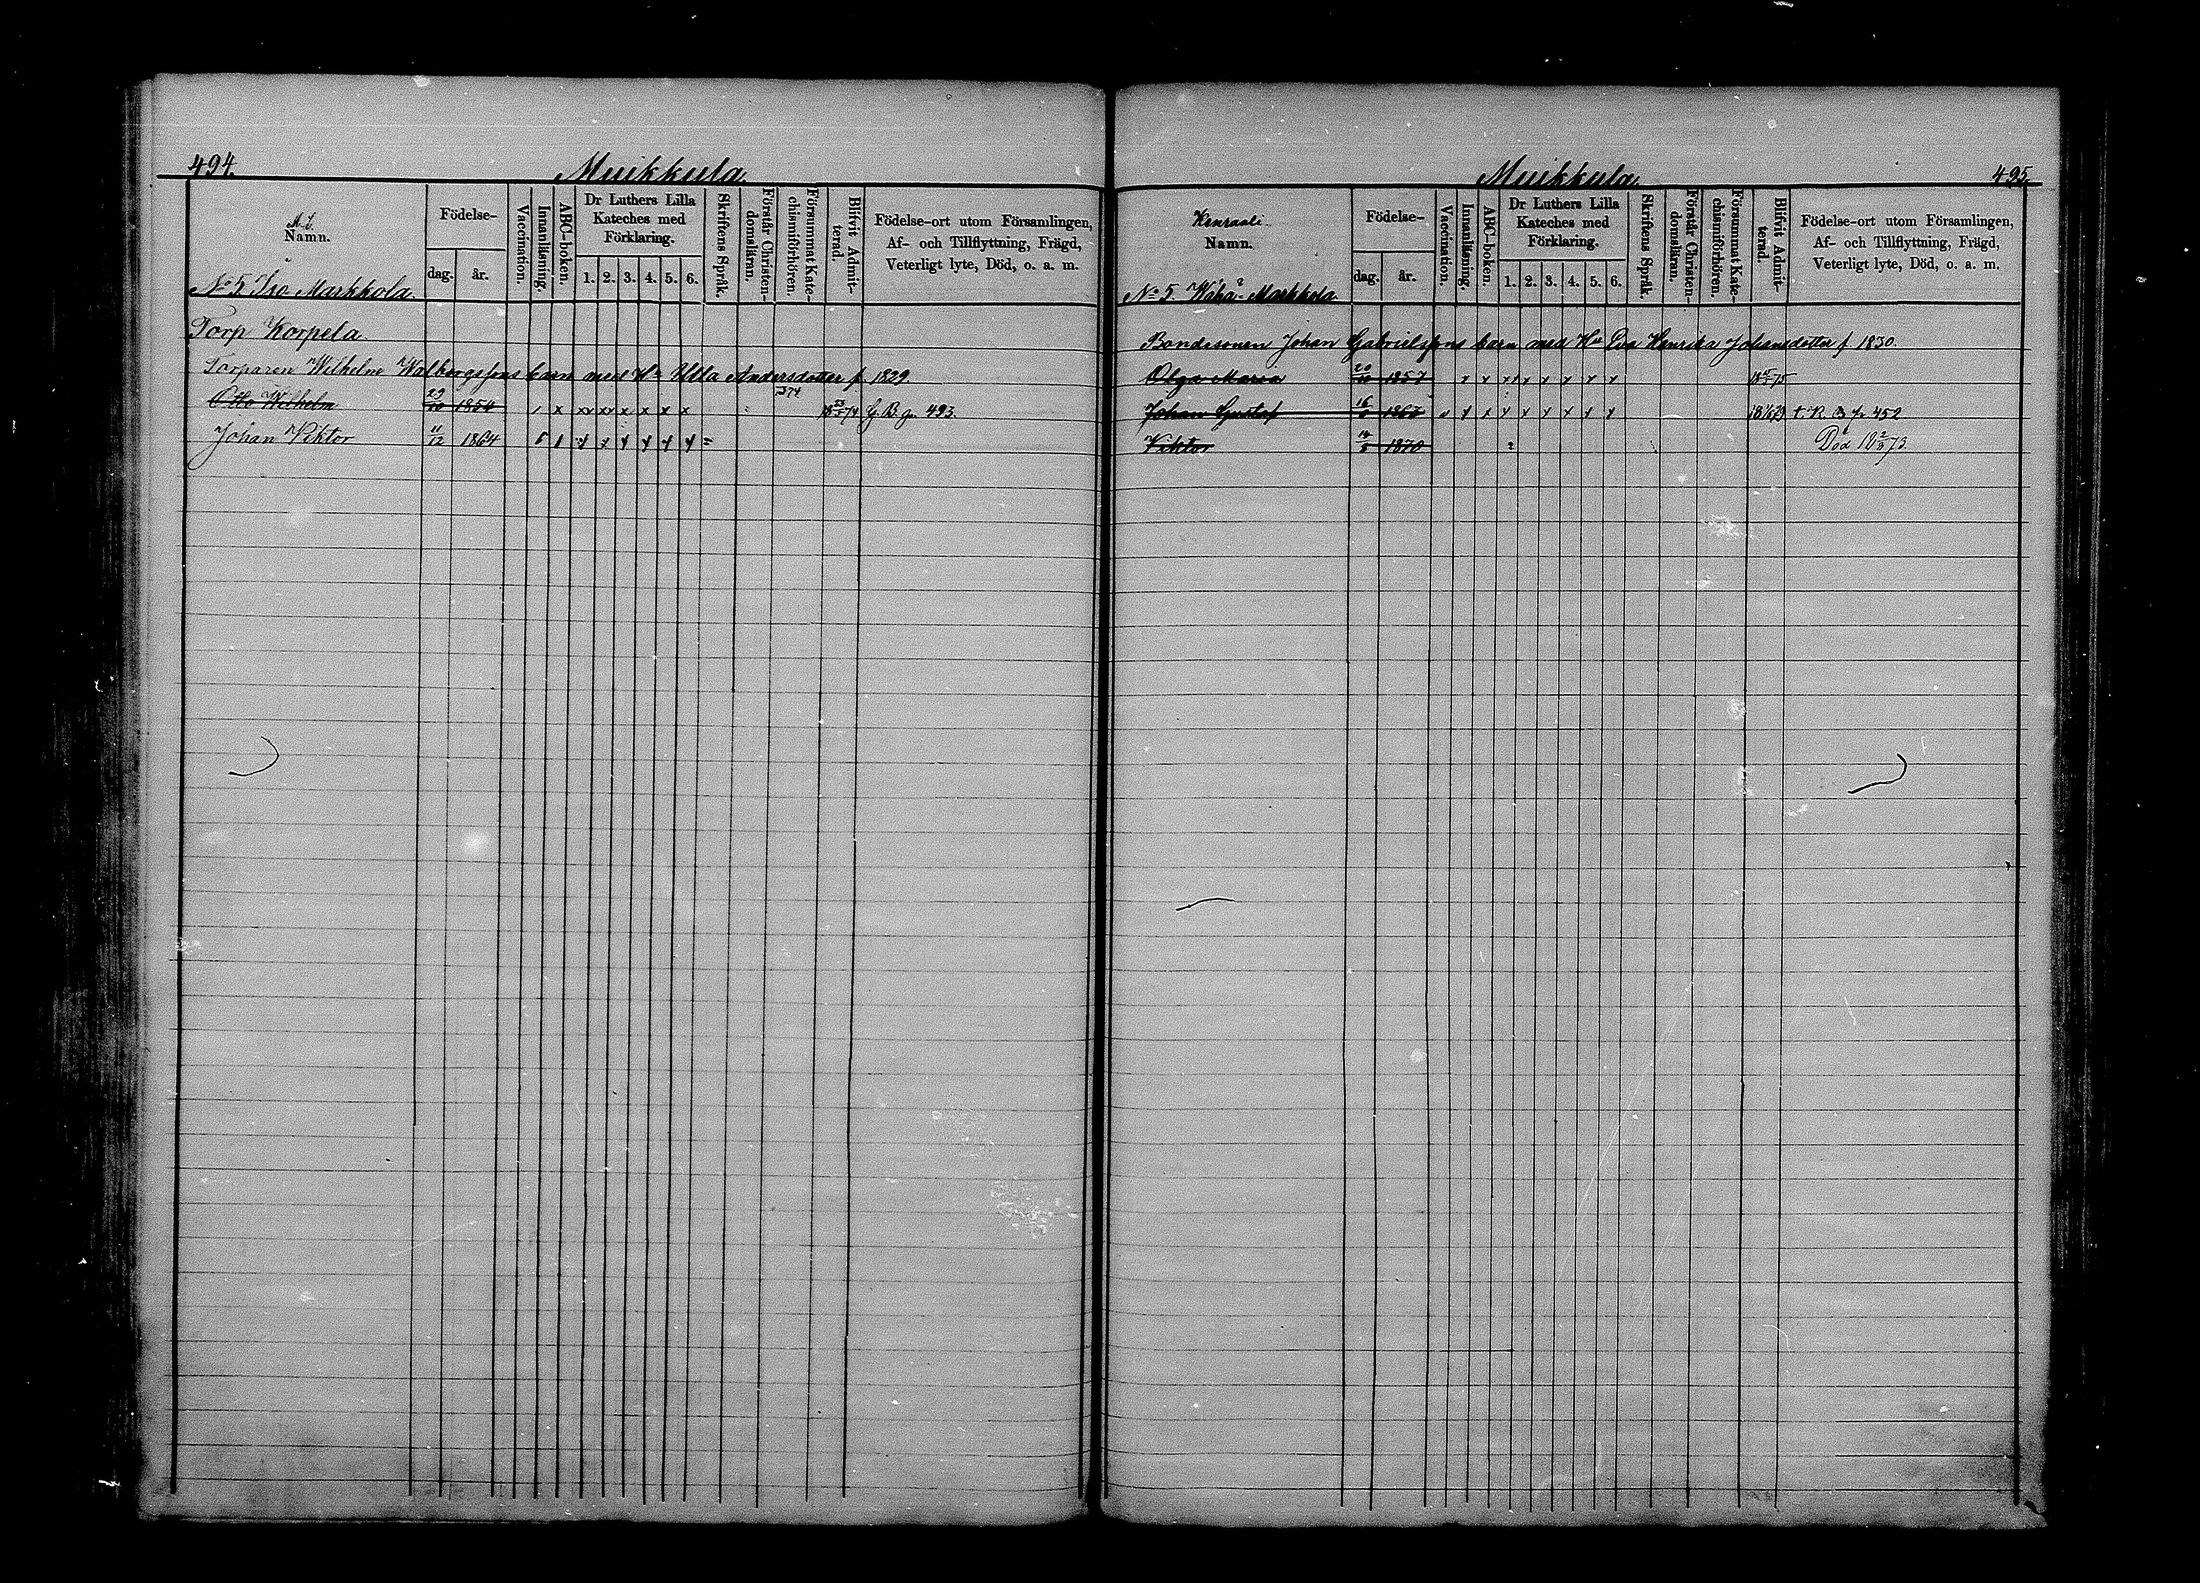 494.
Muikkula.
Namn.
Födelse-
dag.
år.
Vaccination.
Innanläsning.
ABC-boken.
Dr Luthers Lilla
Kateches med
Förklaring.
1. 2. 3. 4. 5. 6.
Skriftens Språk.
Förstår Christen-
domsläran.
Försummat Kate-
chismiförhören.
Blifvit Admit-
terad.
Födelse-ort utom Församlingen,
Af- och Tillflyttning, Frägd,
Veterligt lyte, Död, o. a. m.
No 5 Iso Markkola.
Torp Korpela.
Torparen Wilhelm Walbergssons barn med Hu Ulla Andersdotter f. 1829.
Otto Wilhelm 29/10 1854 x xx xx x x x x 1874 G. B. 493.
Johan Viktor 11/12 1864
Muikkula.
495.
Kenraali.
Namn.
Födelse-
dag.
år.
Vaccination.
Innanläsning.
ABC-boken.
Dr Luthers Lilla
Kateches med
Förklaring.
1. 2. 3. 4. 5. 6.
Skriftens Språk.
Förstår Christen-
domsläran.
Försummat Kate-
chismiförhören.
Blifvit Admit-
terad.
Födelse-ort utom Församlingen,
Af- och Tillflyttning, Frägd,
Veterligt lyte, Död, o. a. m.
No 5 Wähä-Markkola.
Bondesonen Johan Gabrielssons barn med Hu Eva Henrika Johansdotter f. 1830.
Olga Maria 1857 x x xx x x x x x
Johan Gustaf x x x x x x x x 452
Viktor 1870 Död 18 2/3 73.